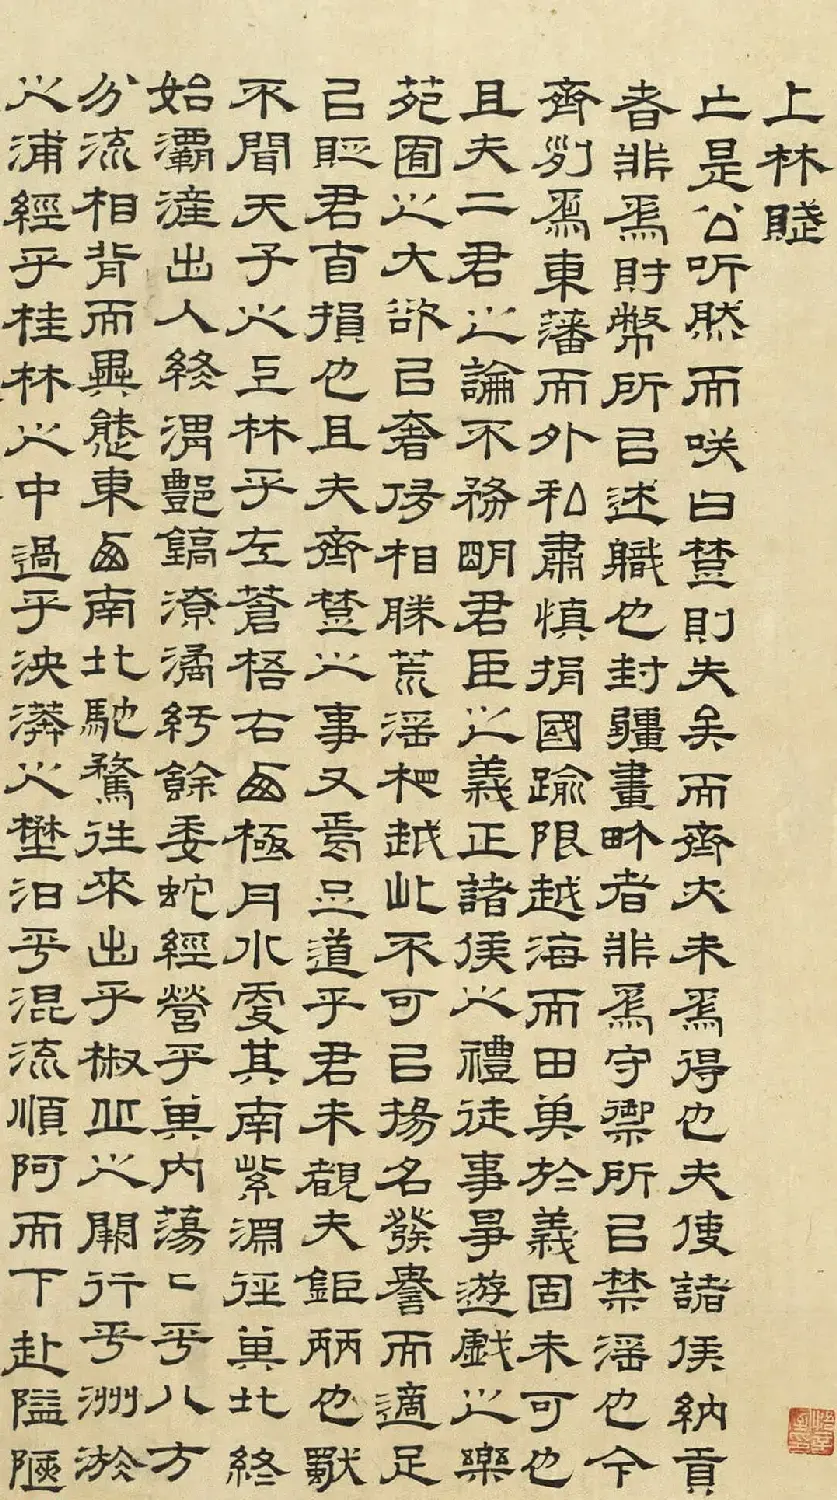 上林賦
亡是公听然而咲曰楚則失矣而齊亦未爲得也夫使諸侯納貢
者非爲財幣所㠯述職也封疆畫畍者非爲守禦所㠯禁淫也今
齊列爲東藩而外私肅慎捐國踰限越海而田其於義固未可也
且夫二君之論不務明君臣之義正諸侯之禮徒事爭遊戲之樂
苑囿之大欲㠯奢侈相勝荒淫相越此不可㠯揚名發譽而適足
㠯貶君自損也且夫齊楚之事又焉足道乎君未覩夫鉅麗也獨
不聞天子之上林乎左蒼梧右西極丹水更其南紫淵徑其北終
始灞滻出入終渭酆鎬潦潏紆餘委蛇經營乎其内蕩〻乎八方
分流相背而異態東西南北馳騖往來出乎椒丘之闕行乎洲淤
之浦經乎桂林之中過乎泱漭之壄汩乎混流順阿而下赴隘陿